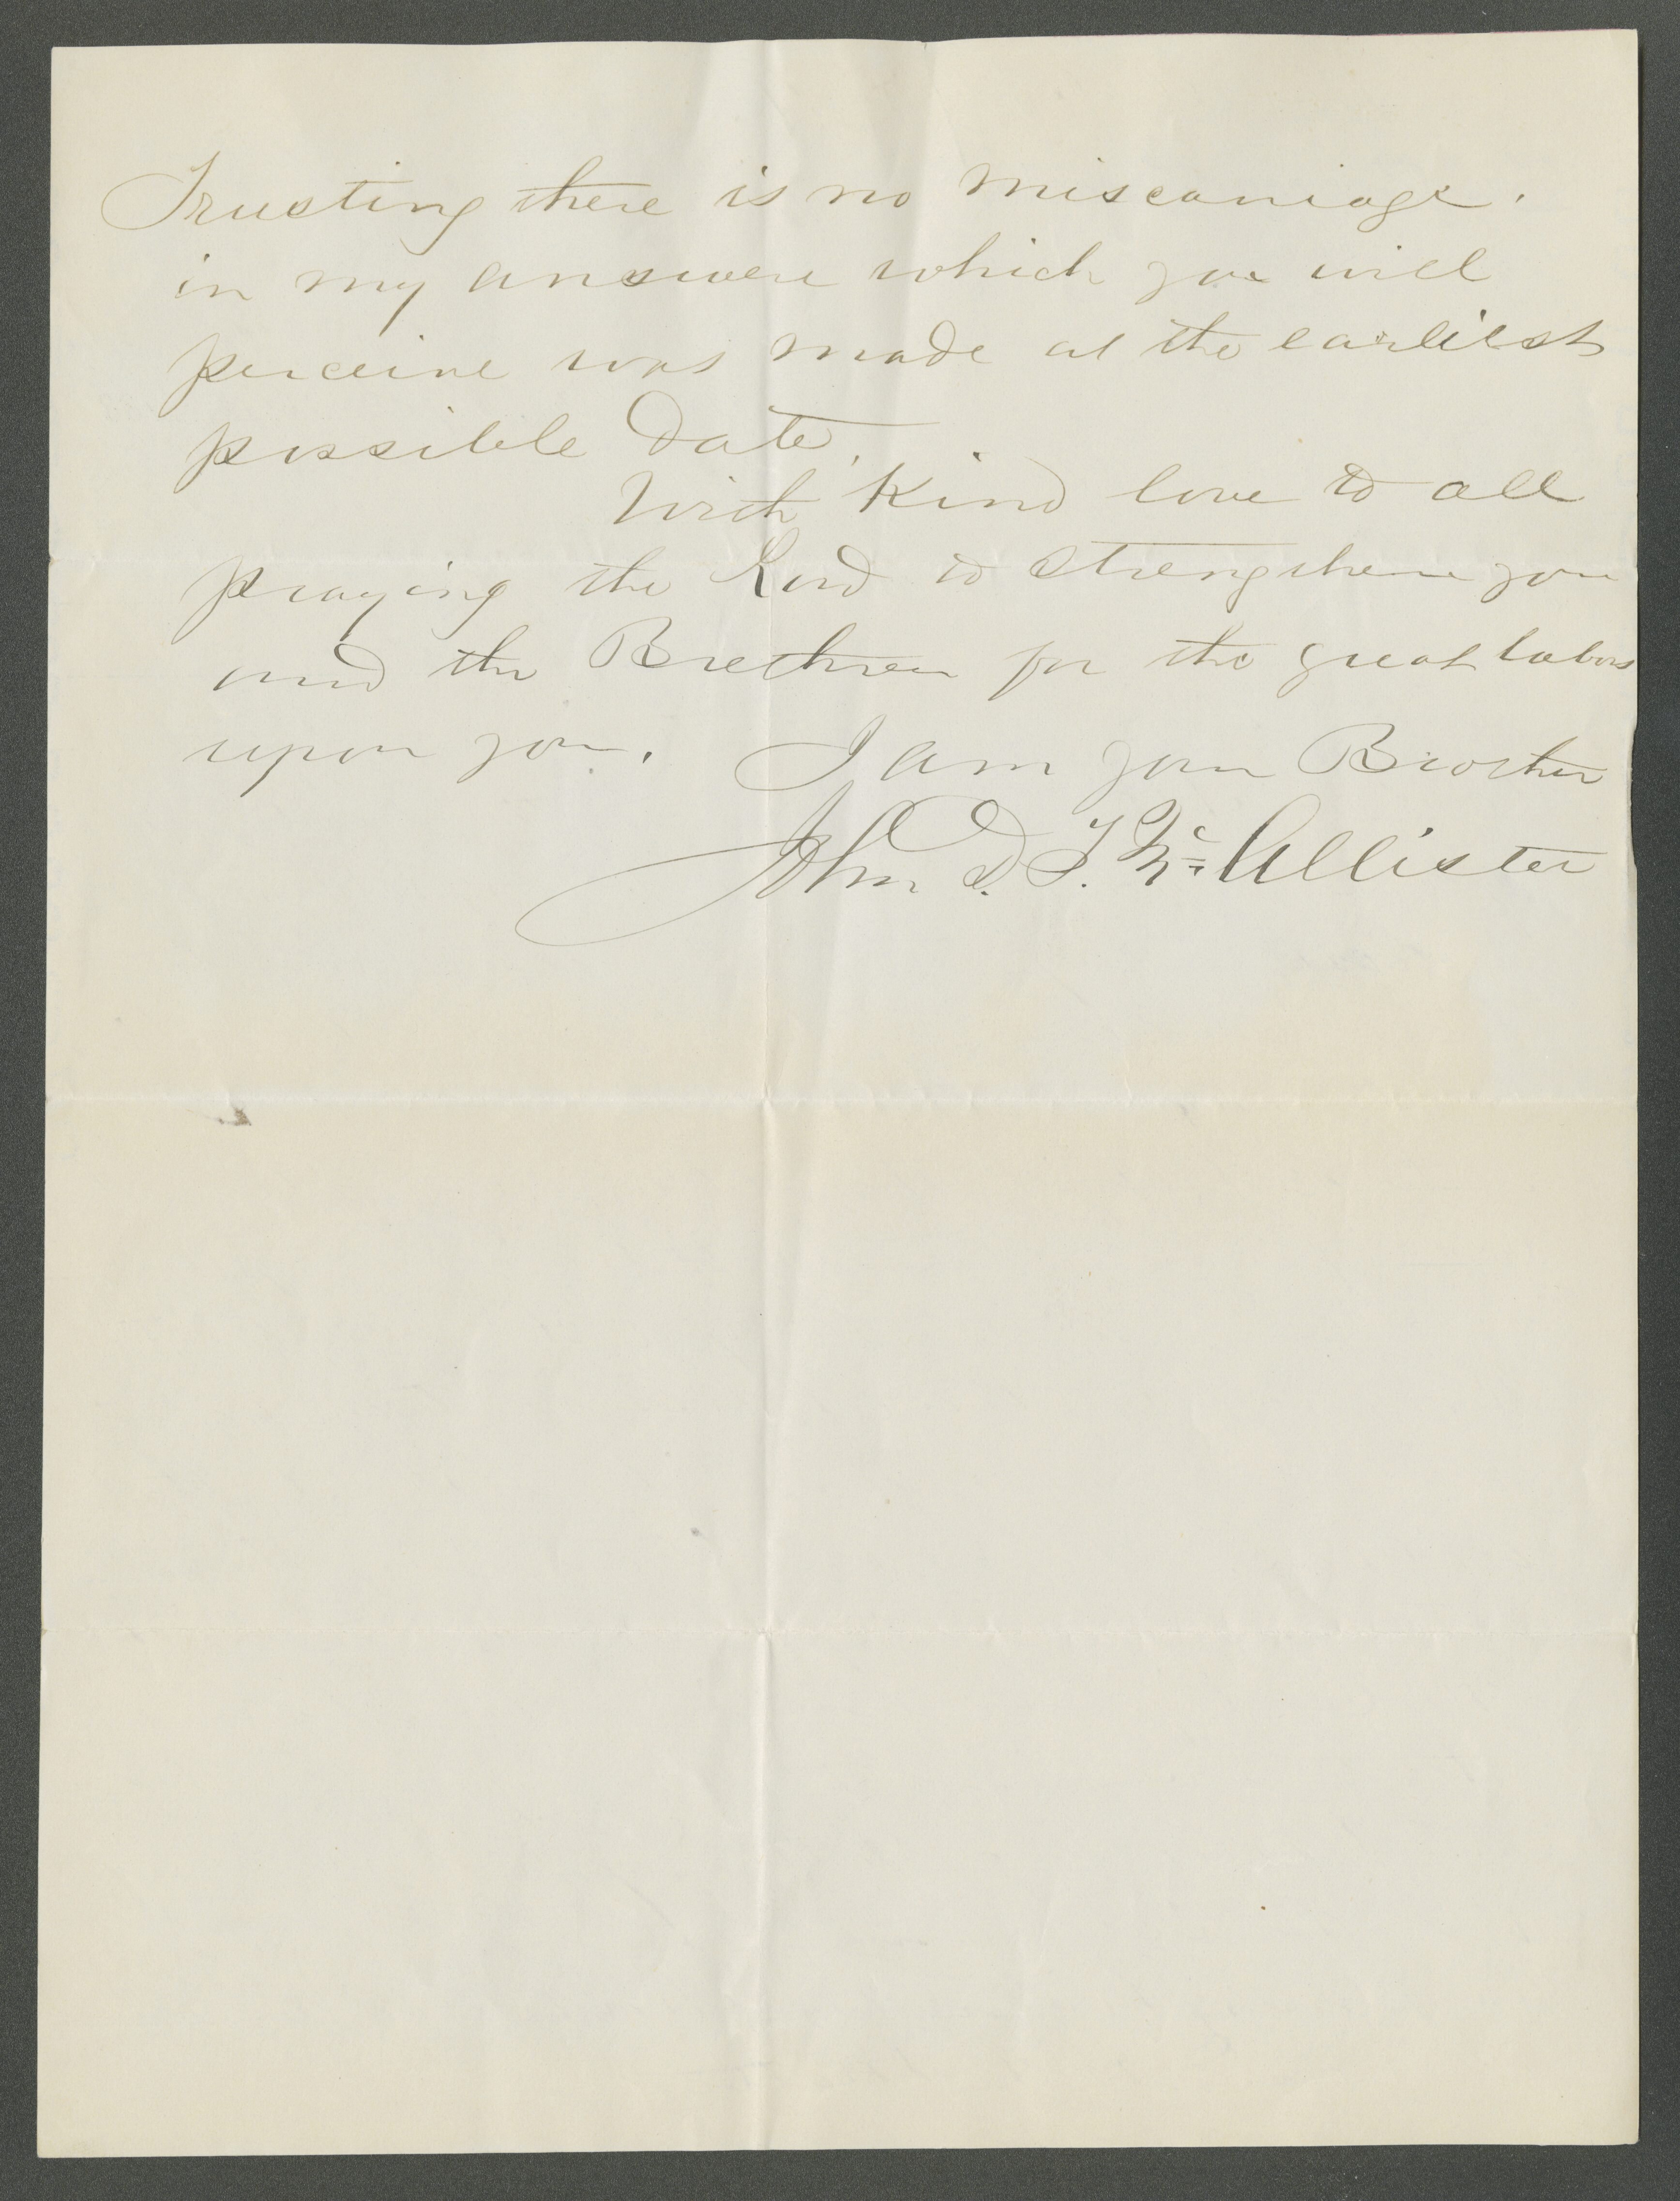 Trusting there is no miscarriage.
in my answere which you will
perceive was made at the earliest
possible date.
With kind love to all
praying the Lord to strengthen you
and the Brethren for the great labors
upon you. I am your Brother
John D. T. McAllister